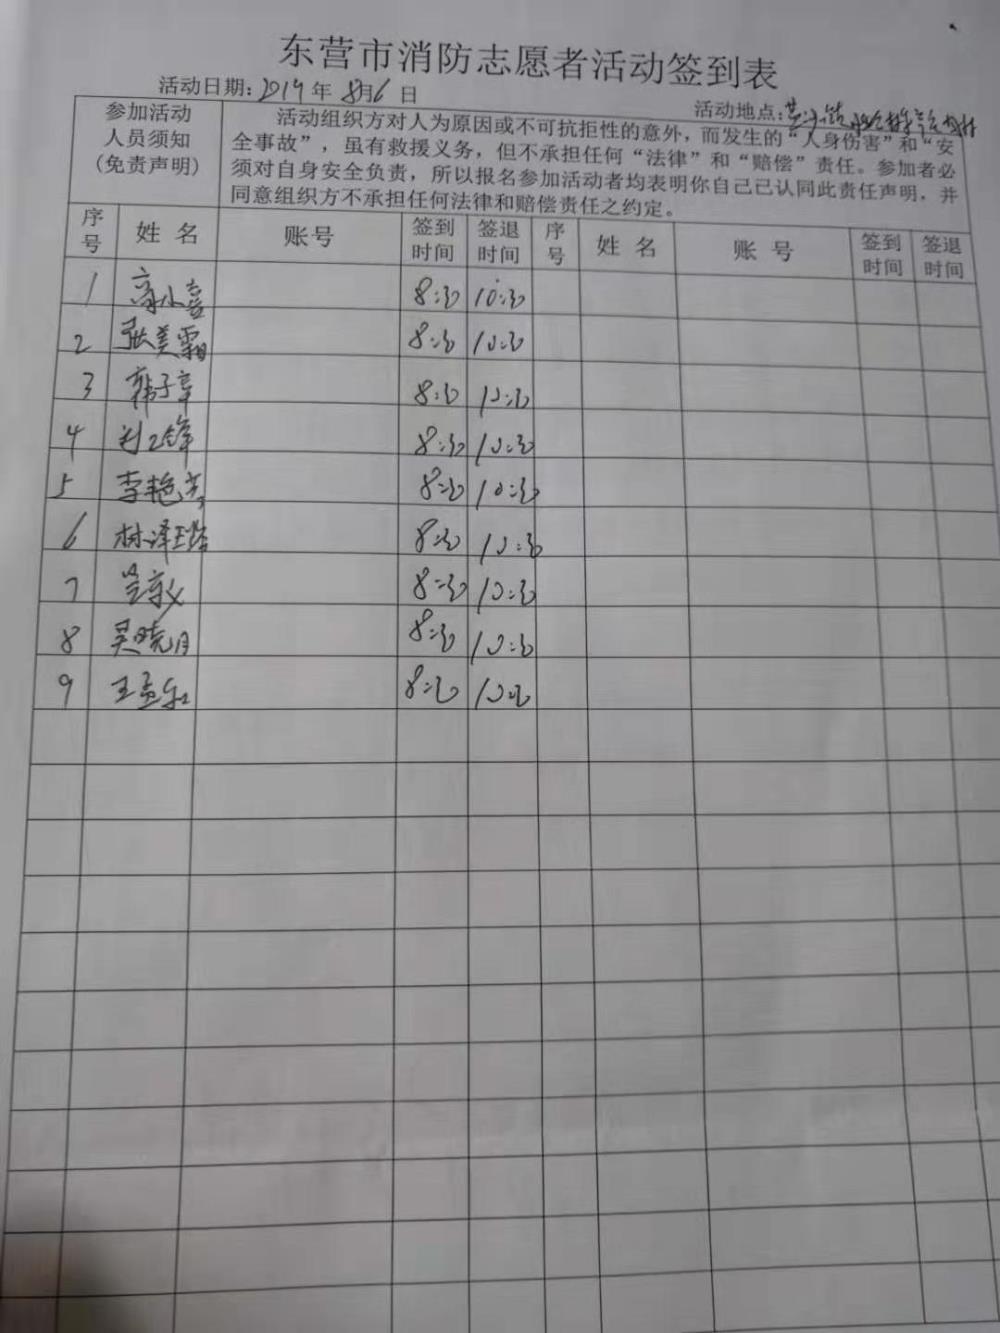 东营市消防志愿者活动签到表
活动日期：2019年8月6日
活动地点：
参加活动
人员须知
（免责声明）
活动组织方对人为原因或不可抗拒性的意外，而发生的“人身伤害”和“安
全事故”，虽有救援义务，但不承担任何“法律”和“赔偿”责任。参加者必
须对自身安全负责，所以报名参加活动者均表明你自己已认同此责任声明，并
同意组织方不承担任何法律和赔偿责任之约定。
序号 姓名 账号 签到时间 签退时间 序号 姓名 账号 签到时间 签退时间
1 高小喜 8:30 10:30
2 张美霜 8:30 10:30
3 韩子辛 8:30 10:30
4 8:30 10:30
5 李艳芳 8:30 10:30
6 林泽 8:30 10:30
7 8:30 10:30
8 吴晓月 8:30 10:30
9 王孟 8:30 10:30